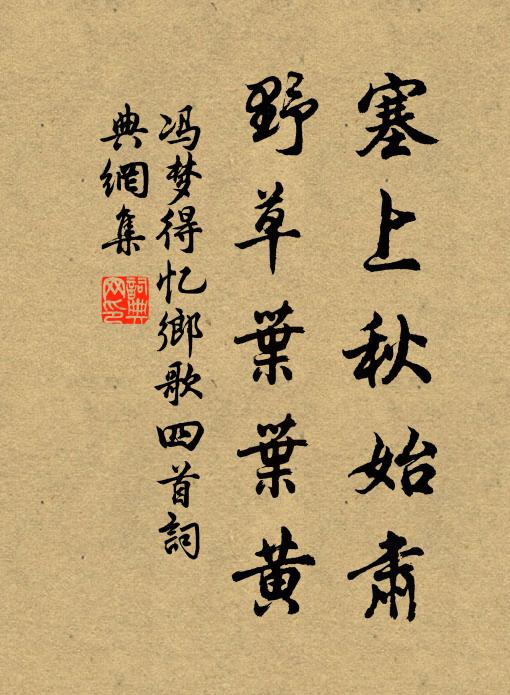 塞上秋始肃
野草葉葉黄
冯梦得忆鄉歌四首詞
典網集
詞典網印